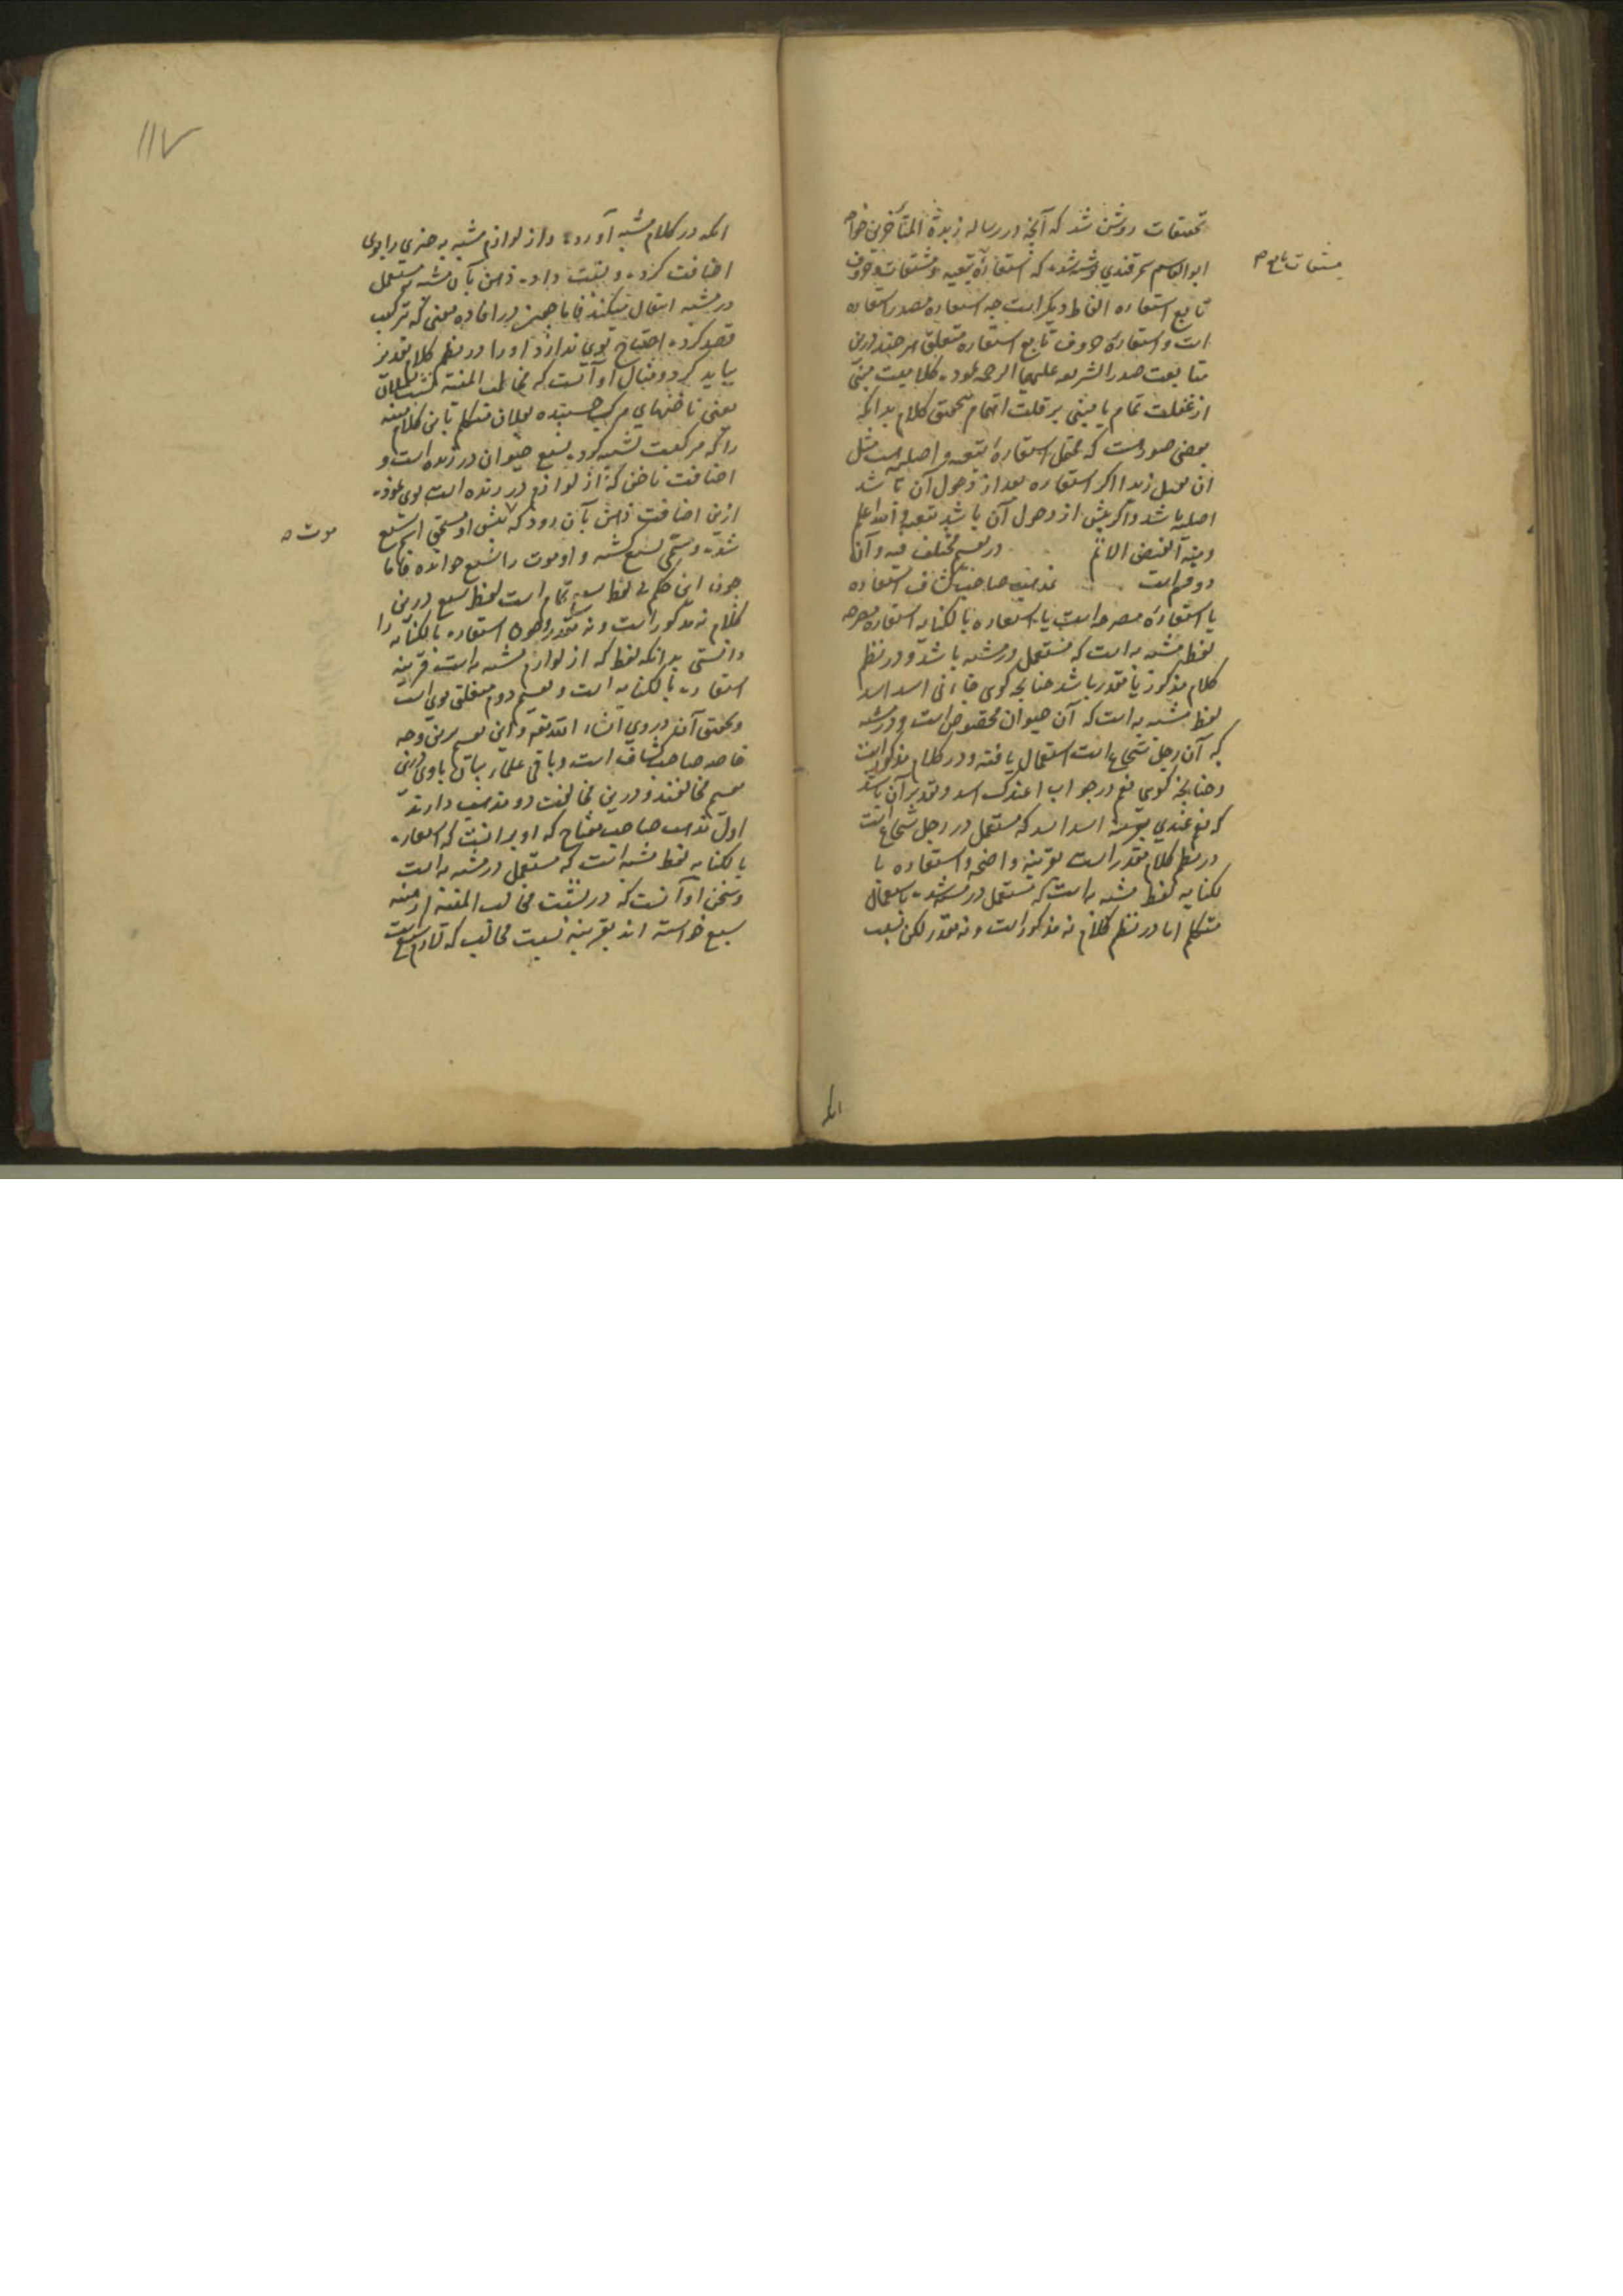 تحقیقات روشن شد که آنچه در رساله زبدة المتأخرین خواجه
ابو القاسم سمرقندی نوشته شده که استعارهٔ تبعیه و مشتقات و حروف
تابع استعاره الفاظ دیگر است چه استعاره مصدر استعاره
است و استعارهٔ حروف تابع استعاره متعلق هر چند درین
متابعت صدر الشریعه علیهما الرحمه نموده کلامیست مبنی
از غفلت تمام یا مبنی بر قلت اهتمام بتحقیق کلام بدانکه
بعضی صور هست که محتمل استعارهٔ تبعیه و اصلیه است مثل
ان زیدا اگر استعاره بعد از دخول آن باشد
اصلیه باشد و اگر پیش از دخول آن باشد تبعیه و الله اعلم
ومنه الفیض الاتم در تقسیم مختلف فیه و آن
دو قسم است مذهب صاحب کشاف استعاره
یا استعارهٔ مصرحه است یا استعاره بالکنایه استعاره مصرحه
لفظ مشبه به است که مستعمل در مشبه باشد و در نظم
کلام مذکور یا مقدر باشد چنانچه کوی جاءنی اسد اسد
لفظ مشبه به است که آن حیوان مخصوص است و در مشبه
که آن رجل شجاع است استعمال یافته و در کلام مذکور است
و چنانچه کوی نعم در جواب اعندک اسد و تقدیر آن باشد
که نعم عندی اسد اسد که مستعمل در رجل شجاع است
در نظم کلام مقدر است بقرینه واضحه و استعاره با
لکنایه لفظ مشبه به است که مستعمل در مشبه شده باستعمال
متکلم اما در نظم کلام نه مذکور است و نه مقدر لکن بسبب
انکه
۱۱۷
انکه در کلام مشبه آورده و از لوازم مشبه به چیزی را بوی
اضافت کرده و نسبت داده ذهن بآن مشبه به مستعمل
در مشبه انتقال میکند فاما چون در افاده معنی که ترکیب
قصد کرده احتیاج بوی ندارد او را در نظم کلام تقدیر
نباید کرد و مثال او آنست که مخالب المنیة نشبت بفلان
یعنی ناخنهای مرک چسبنده بفلان متکلم باین کلام منیه
را که مرکست تشبیه کرده بسبع حیوان درنده است و
اضافت ناخن که از لوازم درنده است بوی نموده
ازین اضافت ذهن بآن رود که پیش او مستحق اسم سبع
موت
شده و مسمی بسبع کشته و او موت را سبع خوانده فاما
چون این حکم بی لفظ سبع تمام است لفظ سبع درین
کلام نه مذکور است و نه مقدر و چون استعاره بالکنایه را
دانستی بدانکه لفظ که از لوازم مشبه به است قرینه
استعاره بالکنایه است و تقسیم دوم متعلق بوی است
و تحقیق آن در وی انشاء الله تعالی و این تقسیم برین وجه
خاصه صاحب کشاف است و باقی علماء بیان باوی درین
تقسیم مخالفند و درین مخالفت دو مذهب دارند
اول مذهب صاحب مفتاح که او برانست که استعاره
بالکنایه لفظ مشبه است که مستعمل در مشبه به است
و سخن او آنست که در نشبت مخالب المنیة از منیه
سبع خواسته اند بقرینه نسبت مخالب که لازم سبع است